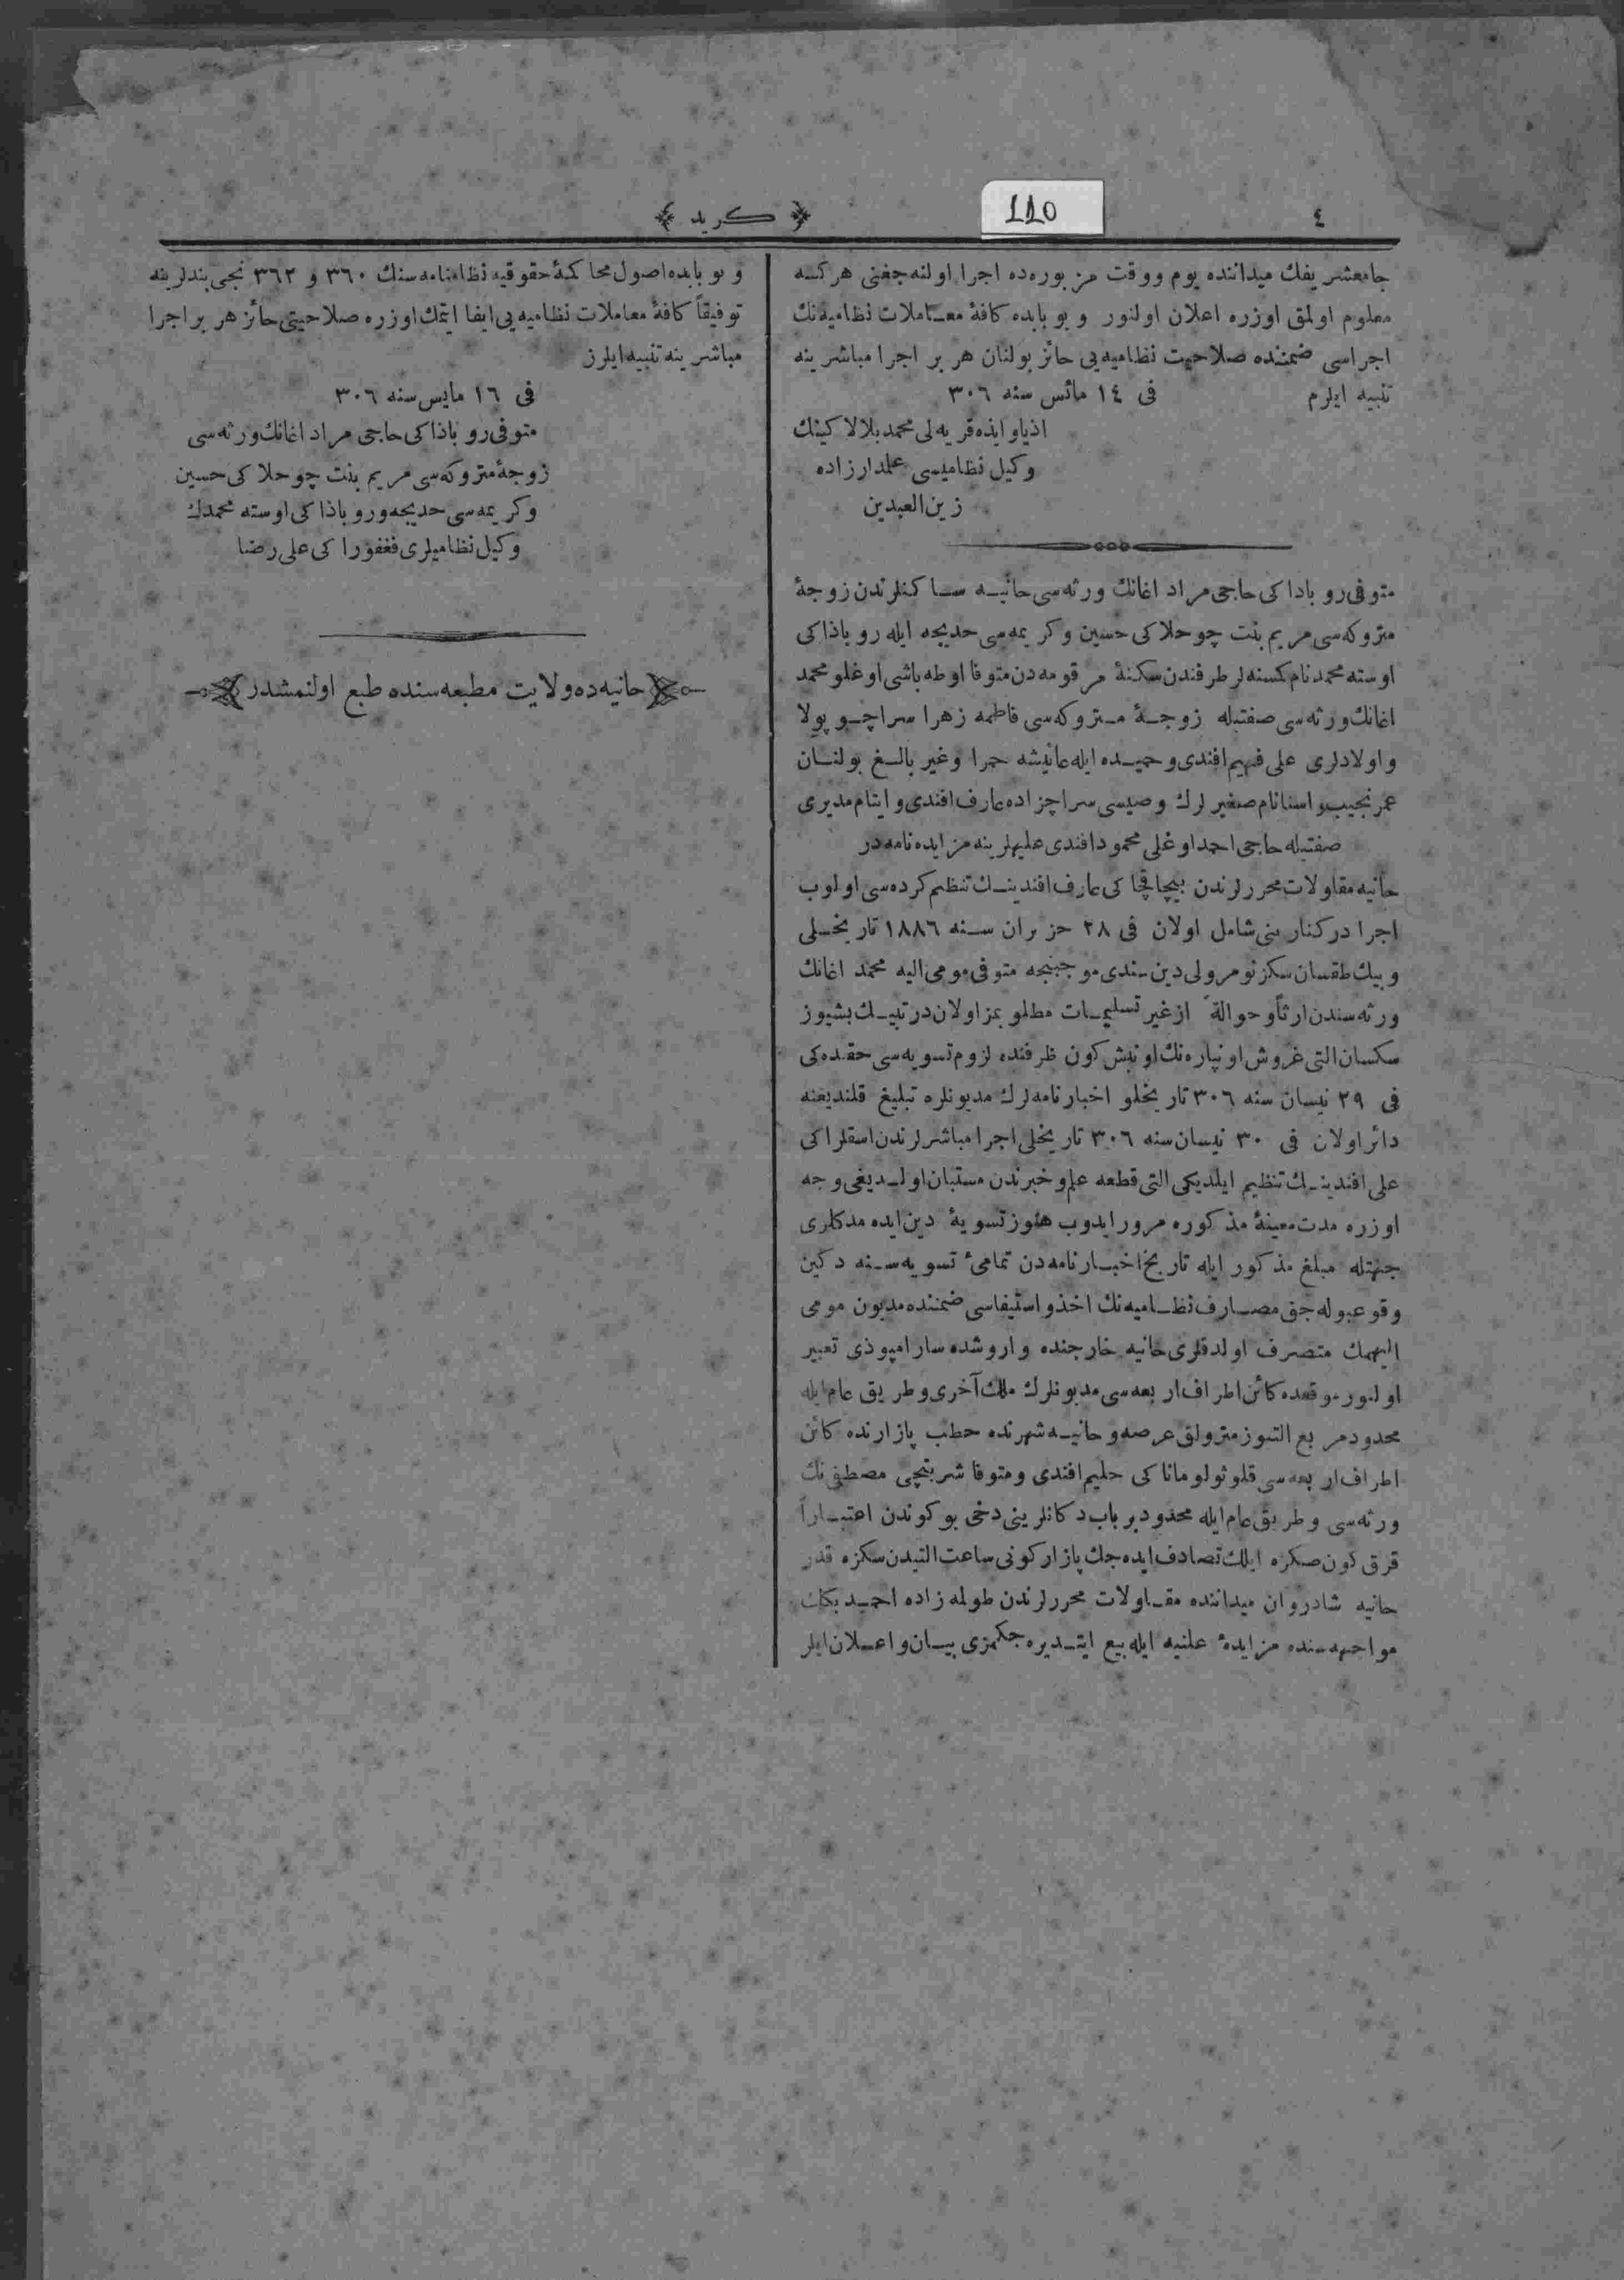 ٤
110
﴿ كريد ﴾
جامعشريفك ميداننده يوم ووقت مزبورەده اجرا اولنه‌جغنى هركسه
معلوم اولمق اوزره اعلان اولنور و بو بابده كافۀ معاملات نظاميه‌نك
اجراسى ضمننده صلاحيت نظاميه‌يى حائز بولنان هر بر اجرا مباشرينه
تنبيه ايلرم فى ١٤ مائس سنه ٣٠٦
اذياوايذه قريه‌لى محمد بلالاكينك
وكيل نظاميسى علمدارزاده
زين العبدين
متوفى روباداكى حاجى مراد اغانك ورثه‌سى حانيه ساكنلرندن زوجۀ
متروكه‌سى مريم بنت چوحلاكى حسين وكريمه‌سى خديجه ايله روباذاكى
اوسته محمد نام كمسنه‌لر طرفندن سكنۀ مرقومه‌دن متوفا اوطه‌باشى اوغلو محمد
اغانك ورثه‌سى صفتيله زوجۀ متروكه‌سى فاطمه زهرا سراچوپولا
و اولادلرى على فهيم افندى و حميده ايله عائيشه حمرا وغير بالغ بولنان
عمر نجيب و اسنا نام صغيرلرك وصيسى سراجزاده عارف افندى و ايتام مديرى
صفتيله حاجى احمد اوغلى محمود افندى عليهلرينه مزايده نامه‌در
حانيه مقاولات محررلرندن بيچاقچاكى عارف افندينك تنظيم كرده‌سى اولوب
اجرا دركنارينى شامل اولان فى ٢٨ حزيران سنه ١٨٨٦ تاريخلى
و بيك طقسان سكز نومرولى دين سندى موجبنجه متوفى مومى اليه محمد اغانك
ورثه‌سندن ارثاً و حوالةً از غير تسليمات مطلوبمز اولان درتبيك بشيوز
سكسان التى غروش اونپاره‌نك اونبش كون ظرفنده لزوم تسويه‌سى حقنده‌كى
فى ٢٩ نيسان سنه ٣٠٦ تاريخلو اخبارنامه‌لرك مديونلره تبليغ قلنديغنه
دائر اولان فى ٣٠ نيسان سنه ٣٠٦ تاريخلى اجرا مباشرلرندن اسقلراكى
على افندينك تنظيم ايلديكى التى قطعه علم و خبرندن مستبان اولديغى وجه
اوزره مدت معينۀ مذكوره مرور ايدوب هنوز تسويۀ دين ايده مدكلرى
جهتله مبلغ مذكور ايله تاريخ اخبارنامه‌دن تمامئ تسويه‌سنه دكين
وقوعبوله‌جق مصارف نظاميه‌نك اخذ و استيفاسى ضمننده مديون مومى
اليهمك متصرف اولدقلرى حانيه خارجنده واروشده سارامپوذى تعبير
اولنور موقعده كائن اطراف اربعه‌سى مديونلرك ملك آخرى و طريق عام ايله
محدود مربع التيوز مترولق عرصه و حانيه شهرنده حطب پازارنده كائن
اطراف اربعه‌سى قلوثولوماناكى حليم افندى و متوفا شربتچى مصطفى‌نك
ورثه‌سى و طريق عام ايله محدود بر باب دكانلرينى دخى بوكوندن اعتباراً
قرق كون صكره ايلك تصادف ايده‌جك پازار كونى ساعت التيدن سكزه قدر
حانيه شادروان ميداننده مقاولات محررلرندن طولمه‌زاده احمد بكك
مواجهه‌سنده مزايدۀ علنيه ايله بيع ايتديره‌جكمزى بيان و اعلان ايلر
و بو بابده اصول محاكمۀ حقوقيه نظامنامه‌سنك ٣٦٠ و ٣٦٢ نجى بندلرينه
توفيقاً كافۀ معاملات نظاميه‌يى ايفا ايتمك اوزره صلاحيتى حائز هر بر اجرا
مباشرينه تنبيه ايلرز
فى ١٦ مايس سنه ٣٠٦
متوفى روباذاكى حاجى مراد اغانك ورثه‌سى
زوجۀ متروكه‌سى مريم بنت چوحلاكى حسين
وكريمه‌سى خديجه و روباذاكى اوسته محمدك
وكيل نظاميلرى فغفوراكى على رضا
حانيه‌ده ولايت مطبعه‌سنده طبع اولنمشدر